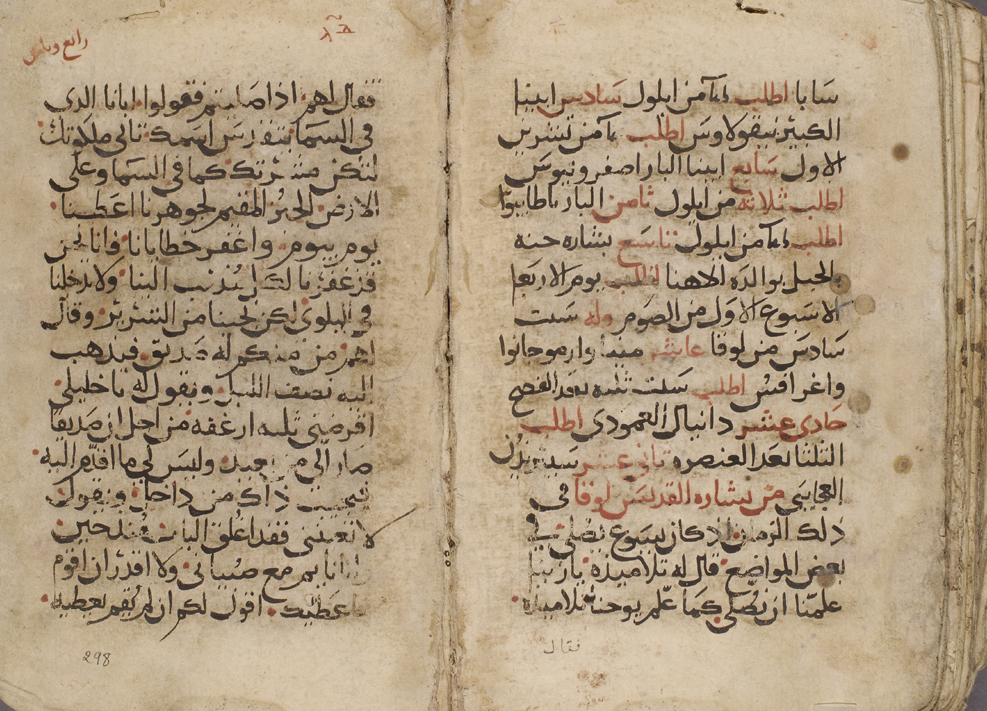 سابا اطلب من ايلول سادس ابينا
الكبير نيقولاوس اطلب من تشرين
الاول سابع ابينا البار اصفرونيوس
اطلب ثلاثه من ايلول ثامن البار
اطلب من ايلول تاسع بشاره حنه
بالحبل بوالدة الاهنا اطلب يوم الاربعا
الاسبوع الاول من الصوم وله سبت
سادس من لوقا عاشر مينا وارموجانوا
واغرافس اطلب سبت ثلثه بعد الفصح
حادي عشر دانيال العمودي اطلب
الثلثا بعد العنصره ثاني عشر سبيريدن
العجايبي من بشاره القديس لوقا في
ذلك الزمان اذ كان يسوع يصلي في
بعض المواضع قال له تلاميذه يا ربنا
علمنا ان نصلي كما علم يوحنا تلاميذه
فقال
رابع
فقال لهم اذا صليتم فقولوا ابانا الدي
في السما يتقدس اسمك تاتي ملكوتك
لتكن مشيئتك كما في السما وعلى
الارض الخبز المقيم لجوهرنا اعطينا
يوم بيوم واغفر خطايانا فاننا نحن
قد غفرنا لكل مذنب الينا ولا تدخلنا
في البلوى لكن نجينا من الشرير وقال
لهم من منكم له صديق فيذهب
اليه نصف الليل ويقول له يا خليلي
اقرضني ثلثه ارغفه من اجل ان صديقا
صار الي من بعيد وليس لي ما اقدم اليه
فيجيب ذاك من داخل ويقول
لا تعيني فقد اغلق الباب منذ حين
وانا نايم مع صبياني ولا اقدر ان اقوم
فاعطيك اقول لكم ان لم يقم يعطيه
298